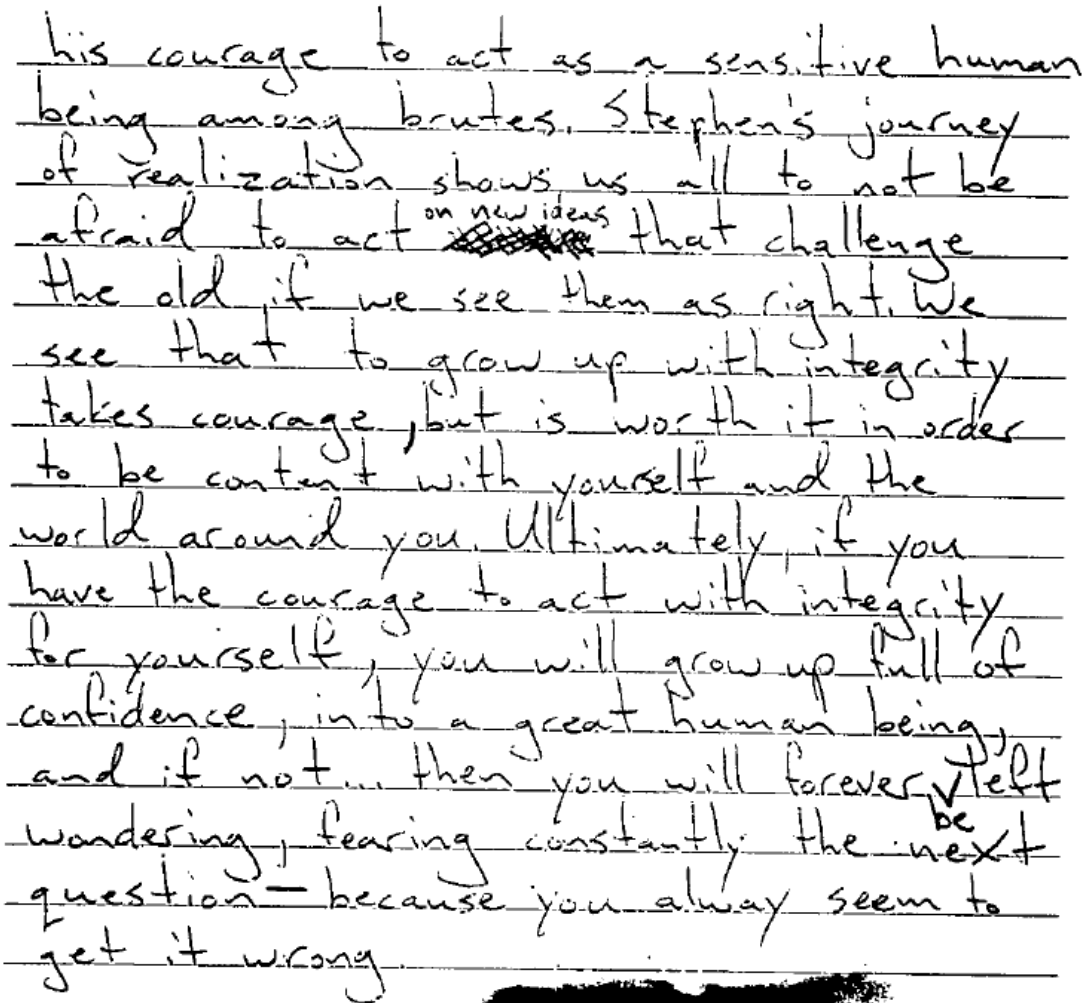 his courage to act as a sensitive human
being among brutes. Stephen's journey
of realization shows us all to not be
afraid to act on new ideas that challenge
the old, if we see them as right. We
see that to grow up with integrity
takes courage, but is worth it in order
to be content with yourself and the
world around you. Ultimately, if you
have the courage to act with integrity
for yourself, you will grow up full of
confidence, into a great human being,
and if not... then you will forever be left
wondering, fearing constantly the next
question — because you alway seem to
get it wrong.